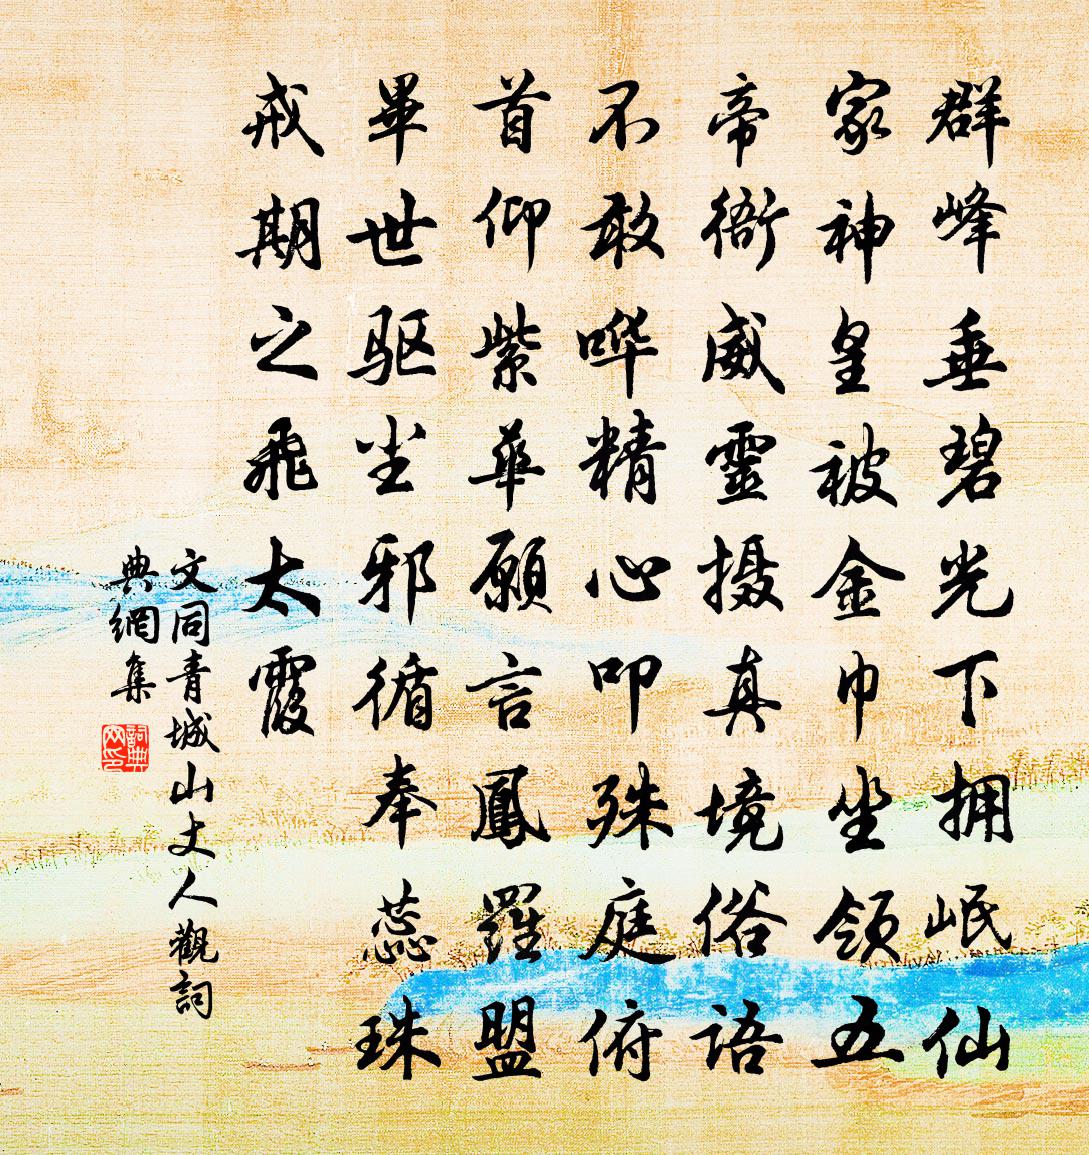 群峰垂碧光下拥岷仙
家神皇被金巾坐领五
帝衙威靈摄真境俗语
不敢哗精心叩殊庭俯
首仰紫華願言鳳羅盟
畢世驱尘邪循奉蕊珠
戒期之飛太霞
文同青城山丈人觀詞
典網集
詞典網印